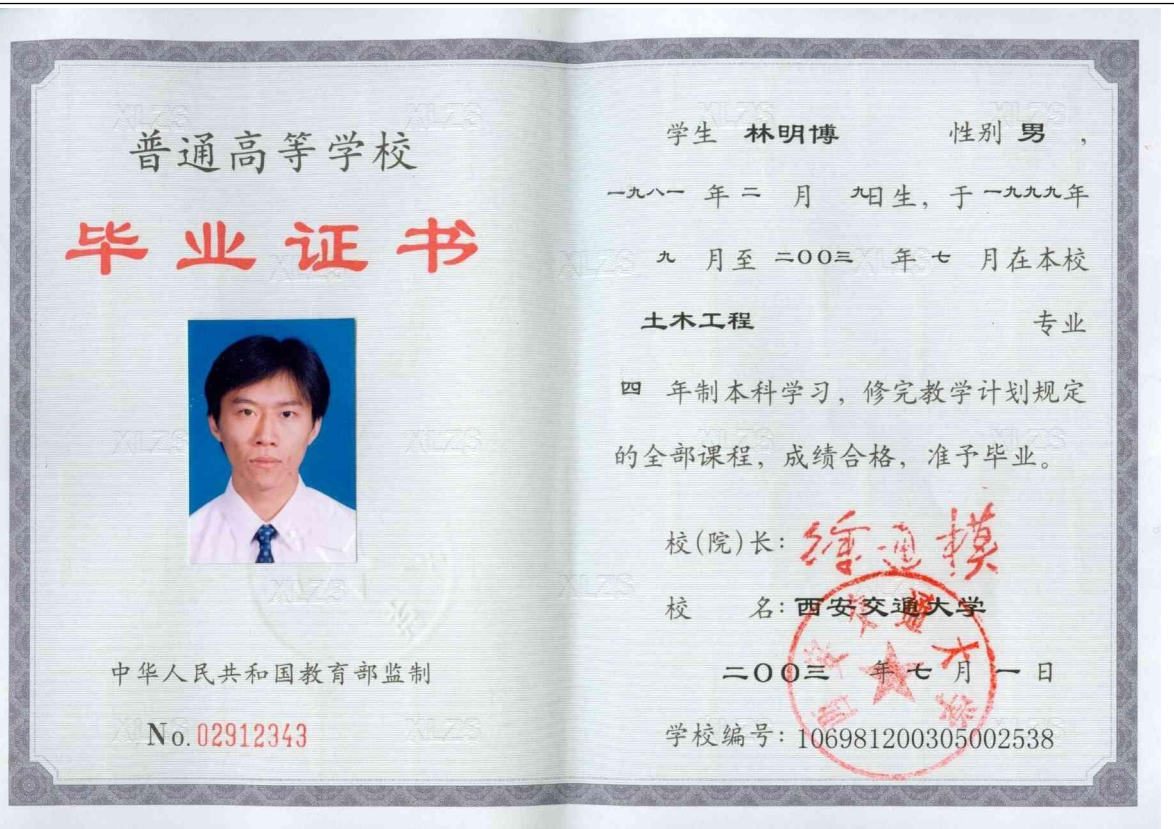 普通高等学校
毕业证书
中华人民共和国教育部监制
No.02912343
学生 林明博 性别 男，
一九八一 年 二 月 九日生，于 一九九九年
九 月至 二OO三 年 七 月在本校
土木工程 专业
四 年制本科学习，修完教学计划规定
的全部课程，成绩合格，准予毕业。
校(院)长：徐通模
校 名：西安交通大学
二OO三 年 七 月 一 日
学校编号：106981200305002538
西安交通大学
XLZS